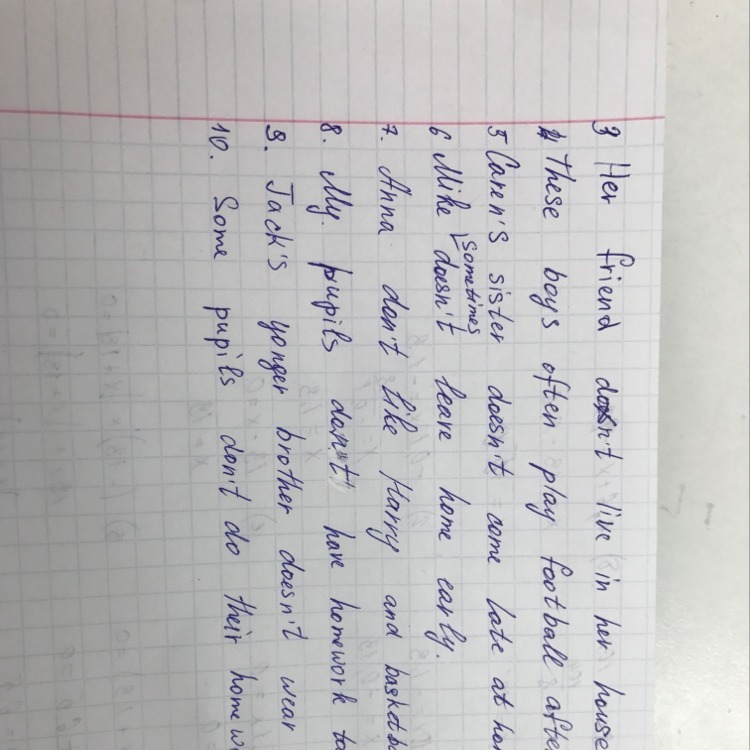 3 Her friend doesn't live in her house
4 These boys often play football afte
5 Caren's sister doesn't come late at hom
6 Mike sometimes doesn't leave home early.
7. Anna don't like Harry and
8. My pupils don't have homework
9. Jack's yonger brother doesn't wear
10. Some pupils don't do their homew